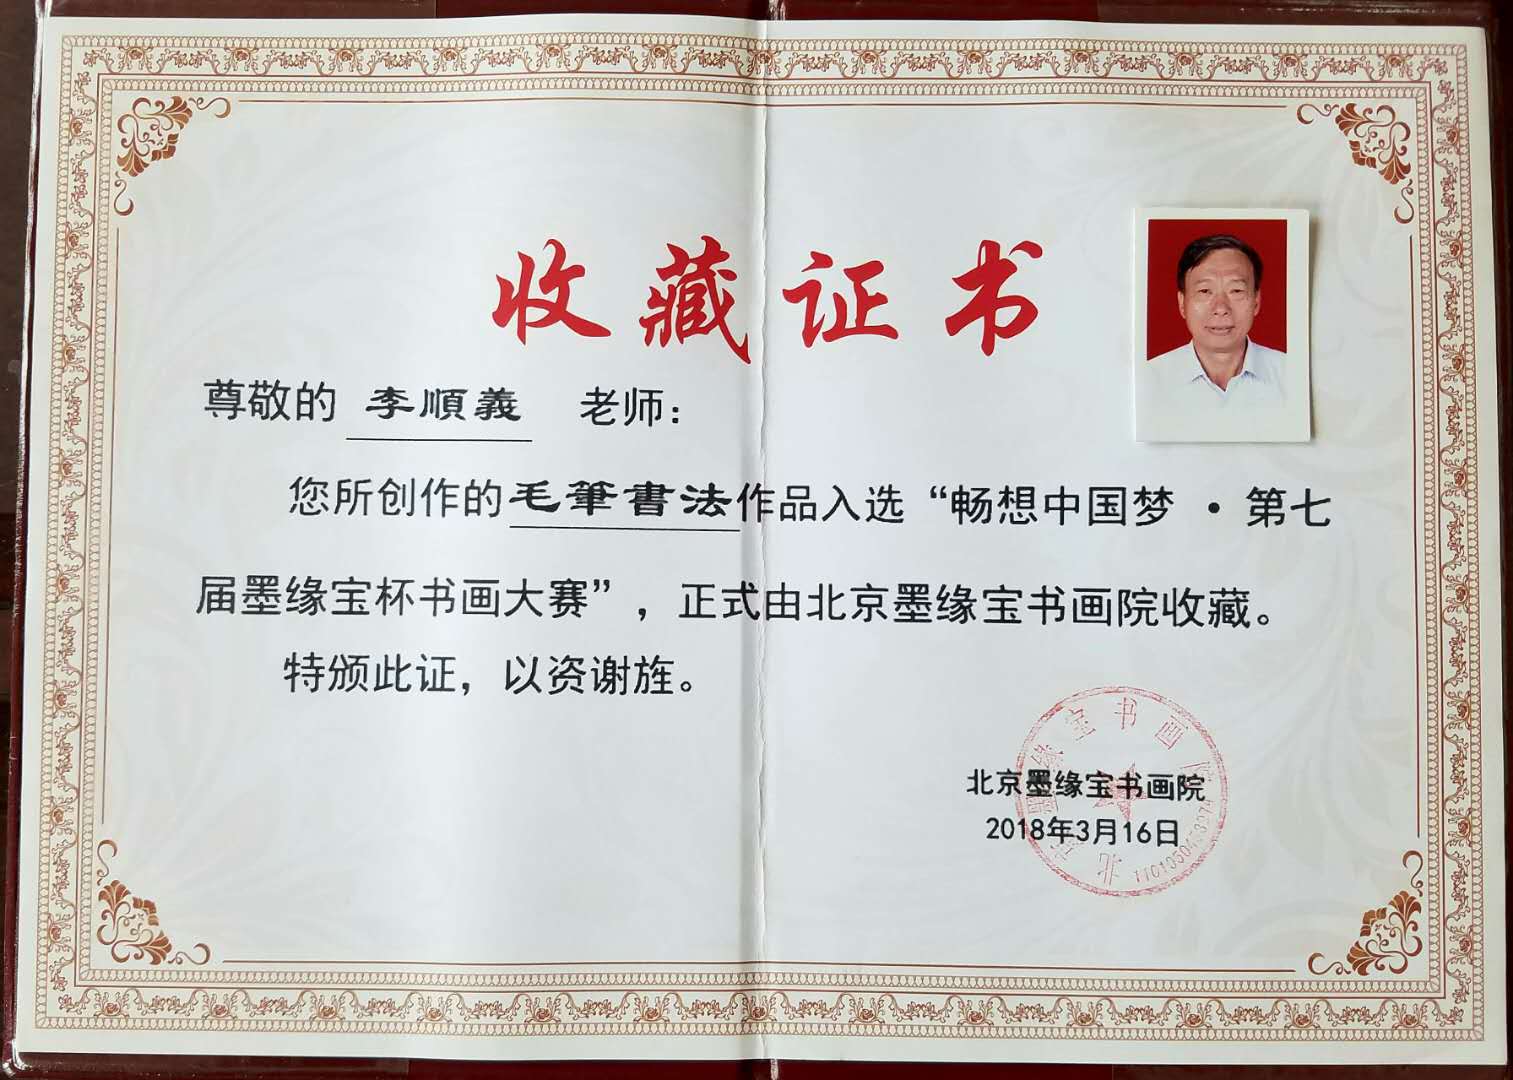 收藏证书
尊敬的 李順義 老师：
您所创作的毛筆書法作品入选“畅想中国梦·第七
届墨缘宝杯书画大赛”，正式由北京墨缘宝书画院收藏。
特颁此证，以资谢旌。
北京墨缘宝书画院
2018年3月16日
北京墨缘宝书画院